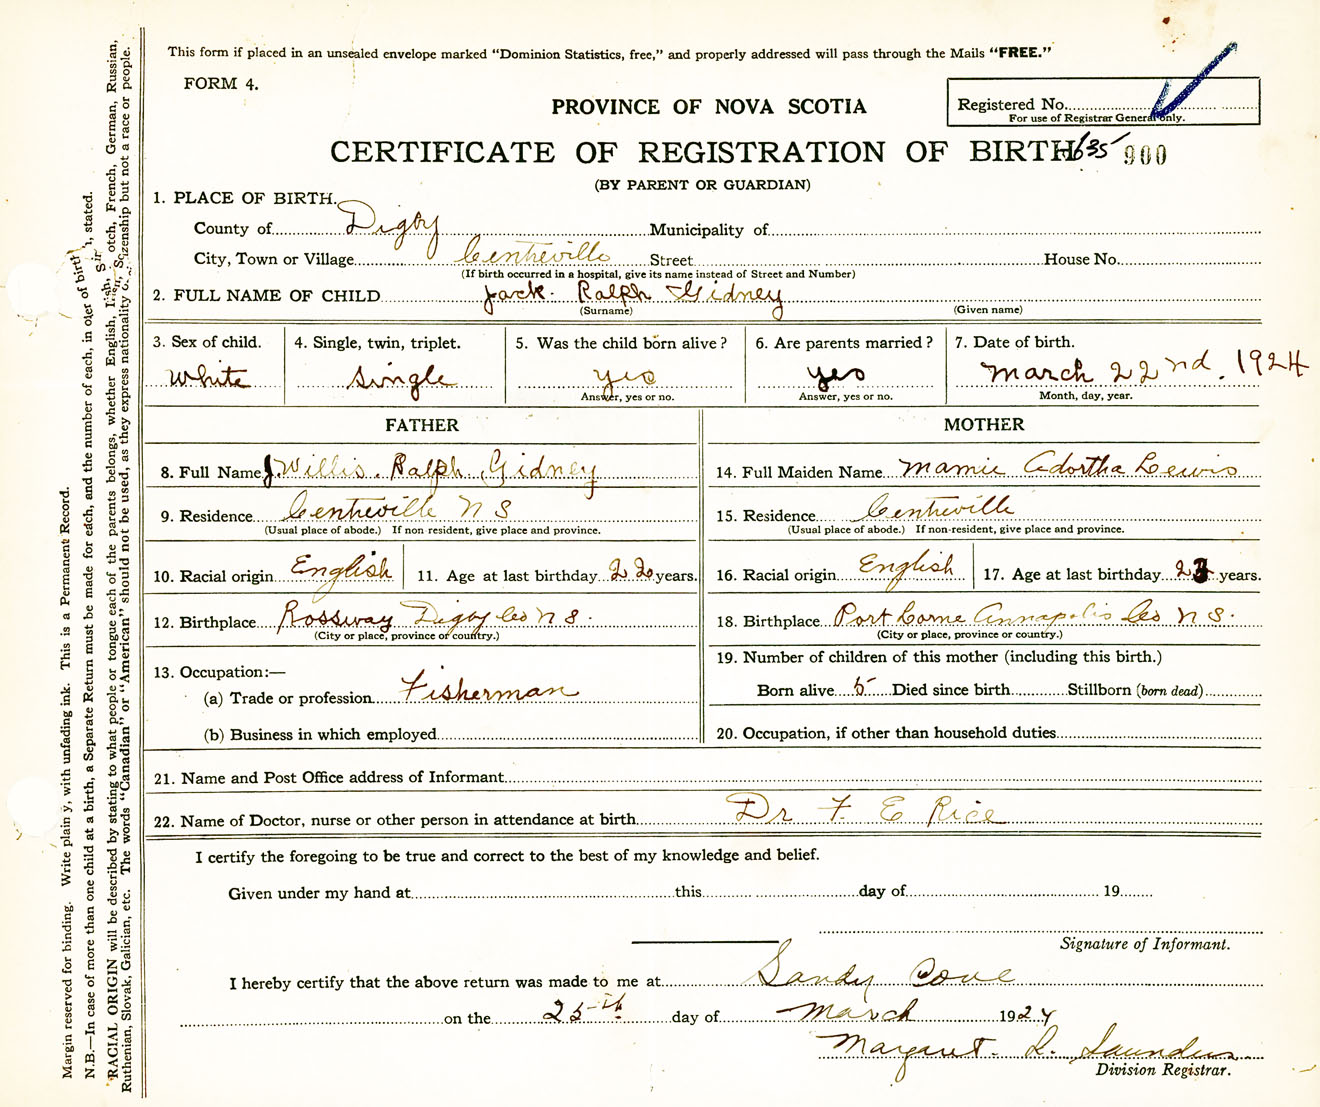 This form if placed in an unsealed envelope marked "Dominion Statistics, free," and properly addressed will pass through the Mails "FREE."
FORM 4.
Registered No.
For use of Registrar General only.
PROVINCE OF NOVA SCOTIA
CERTIFICATE OF REGISTRATION OF BIRTH 635 900
(BY PARENT OR GUARDIAN)
1. PLACE OF BIRTH.
County of Digby Municipality of
City, Town or Village Centreville Street House No.
(If birth occurred in a hospital, give its name instead of Street and Number)
2. FULL NAME OF CHILD Jack. Ralph Gidney
(Surname) (Given name)
3. Sex of child. 4. Single, twin, triplet. 5. Was the child born alive? 6. Are parents married? 7. Date of birth.
White single yes yes March 22nd. 1924
Answer, yes or no. Answer, yes or no. Month, day, year.
FATHER MOTHER
8. Full Name J. Willis. Ralph Gidney 14. Full Maiden Name Mamie Adortha Lewis
9. Residence Centreville N S 15. Residence Centreville
(Usual place of abode.) If non-resident, give place and province. (Usual place of abode.) If non-resident, give place and province.
10. Racial origin English 11. Age at last birthday 22 years. 16. Racial origin English 17. Age at last birthday 23 years.
12. Birthplace Rossway Digby Co N S. 18. Birthplace Port Lorne Annapolis Co N S.
(City or place, province or country.) (City or place, province or country.)
13. Occupation:— 19. Number of children of this mother (including this birth.)
(a) Trade or profession Fisherman Born alive 5 Died since birth Stillborn (born dead)
(b) Business in which employed 20. Occupation, if other than household duties
21. Name and Post Office address of Informant
22. Name of Doctor, nurse or other person in attendance at birth Dr F. E Rice
I certify the foregoing to be true and correct to the best of my knowledge and belief.
Given under my hand at this day of 19
Signature of Informant.
I hereby certify that the above return was made to me at Sandy Cove
on the 25th day of March 1924
Margaret. L. Saunders
Division Registrar.
Margin reserved for binding. Write plainly, with unfading ink. This is a Permanent Record.
N.B.—In case of more than one child at a birth, a Separate Return must be made for each, and the number of each, in order of birth, stated.
"RACIAL ORIGIN will be described by stating to what people or tongue each of the parents belongs, whether English, Irish, Scotch, French, German, Russian,
Ruthenian, Slovak, Galician, etc. The words "Canadian" or "American" should not be used, as they express nationality or citizenship but not a race or people.